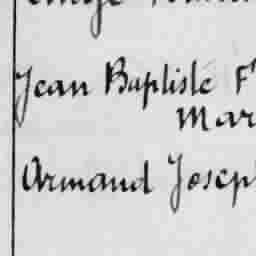 Jean Baptiste F
Mar
Armand Josep